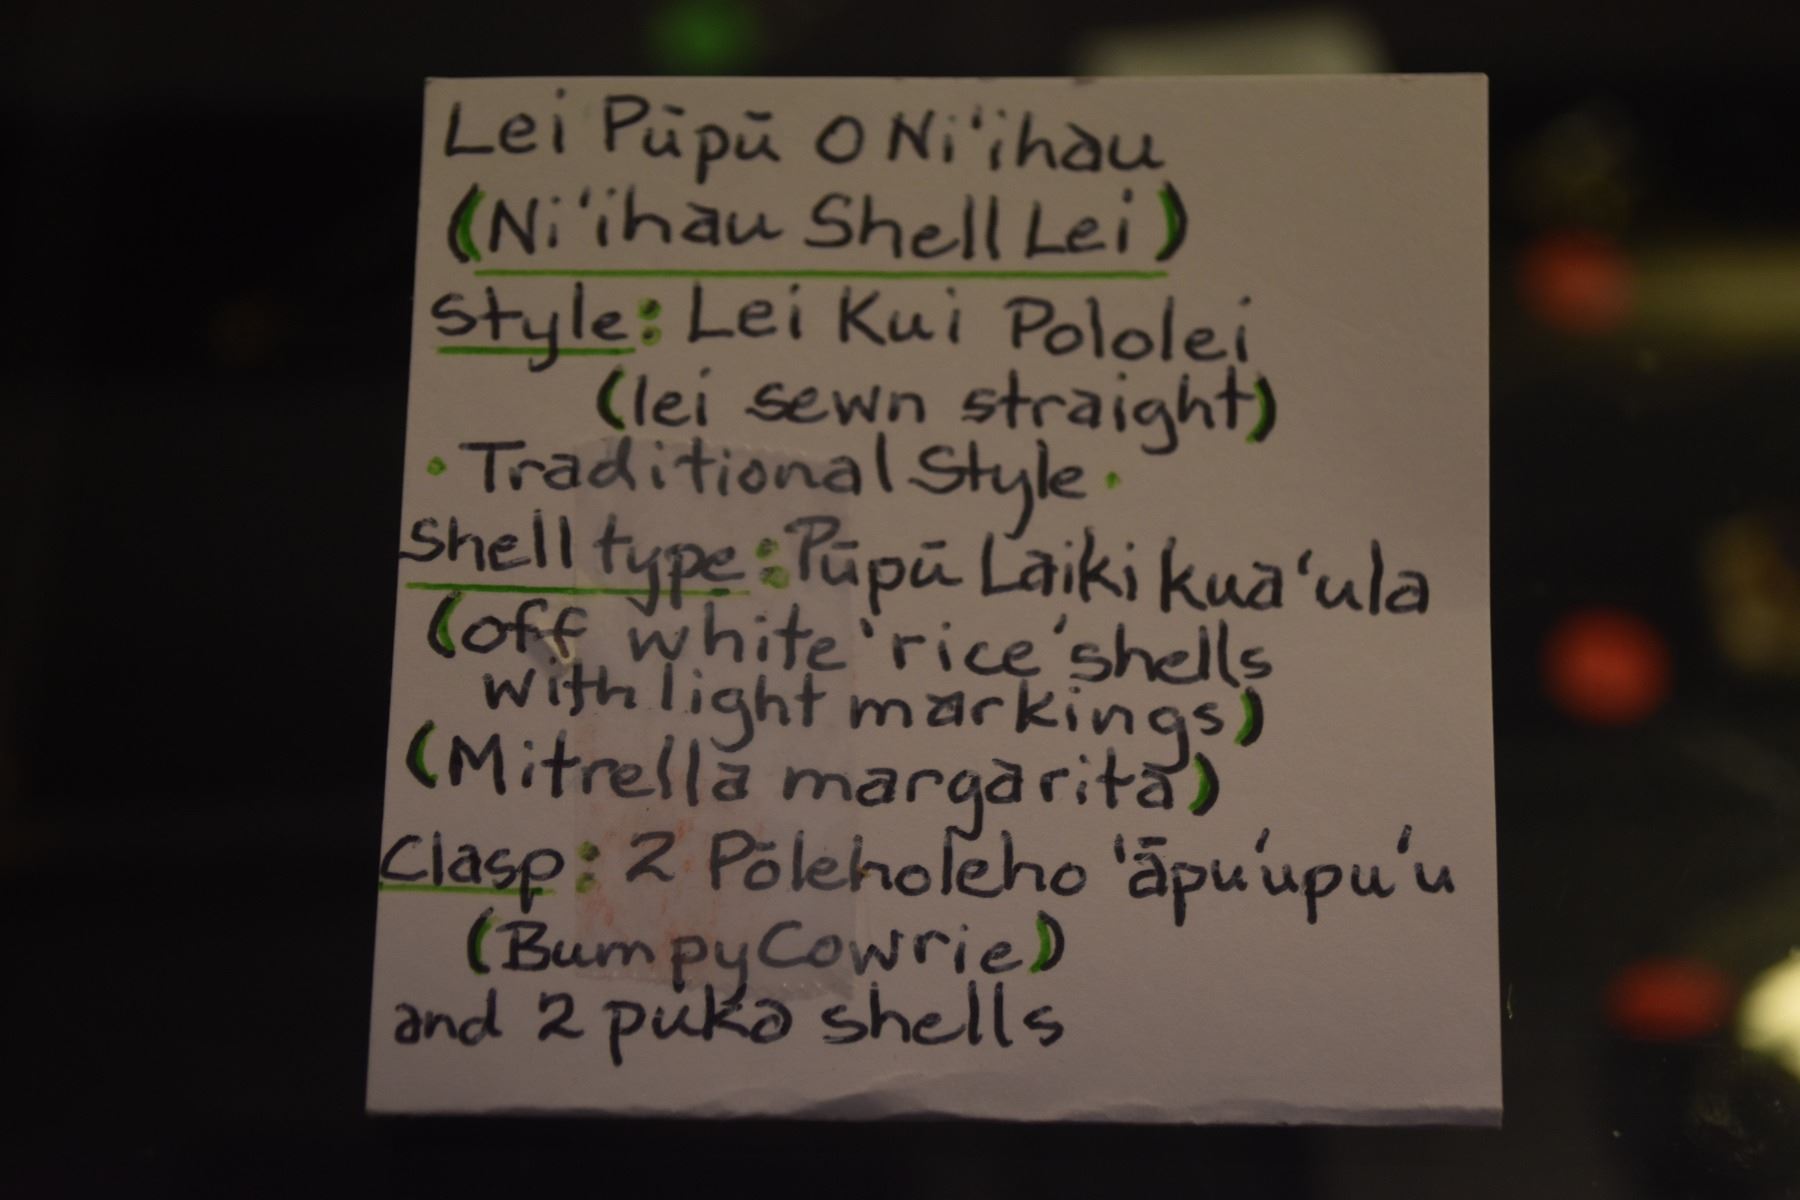 Lei Pūpū O Ni'ihau
(Ni'ihau Shell Lei)
Style: Lei Kui Pololei
(lei sewn straight)
• Traditional Style •
Shell type: Pūpū Laiki kua'ula
(off white 'rice' shells
with light markings)
(Mitrella margarita)
Clasp: 2 Pōleholeho 'āpu'upu'u
(Bumpy Cowrie)
and 2 puka shells